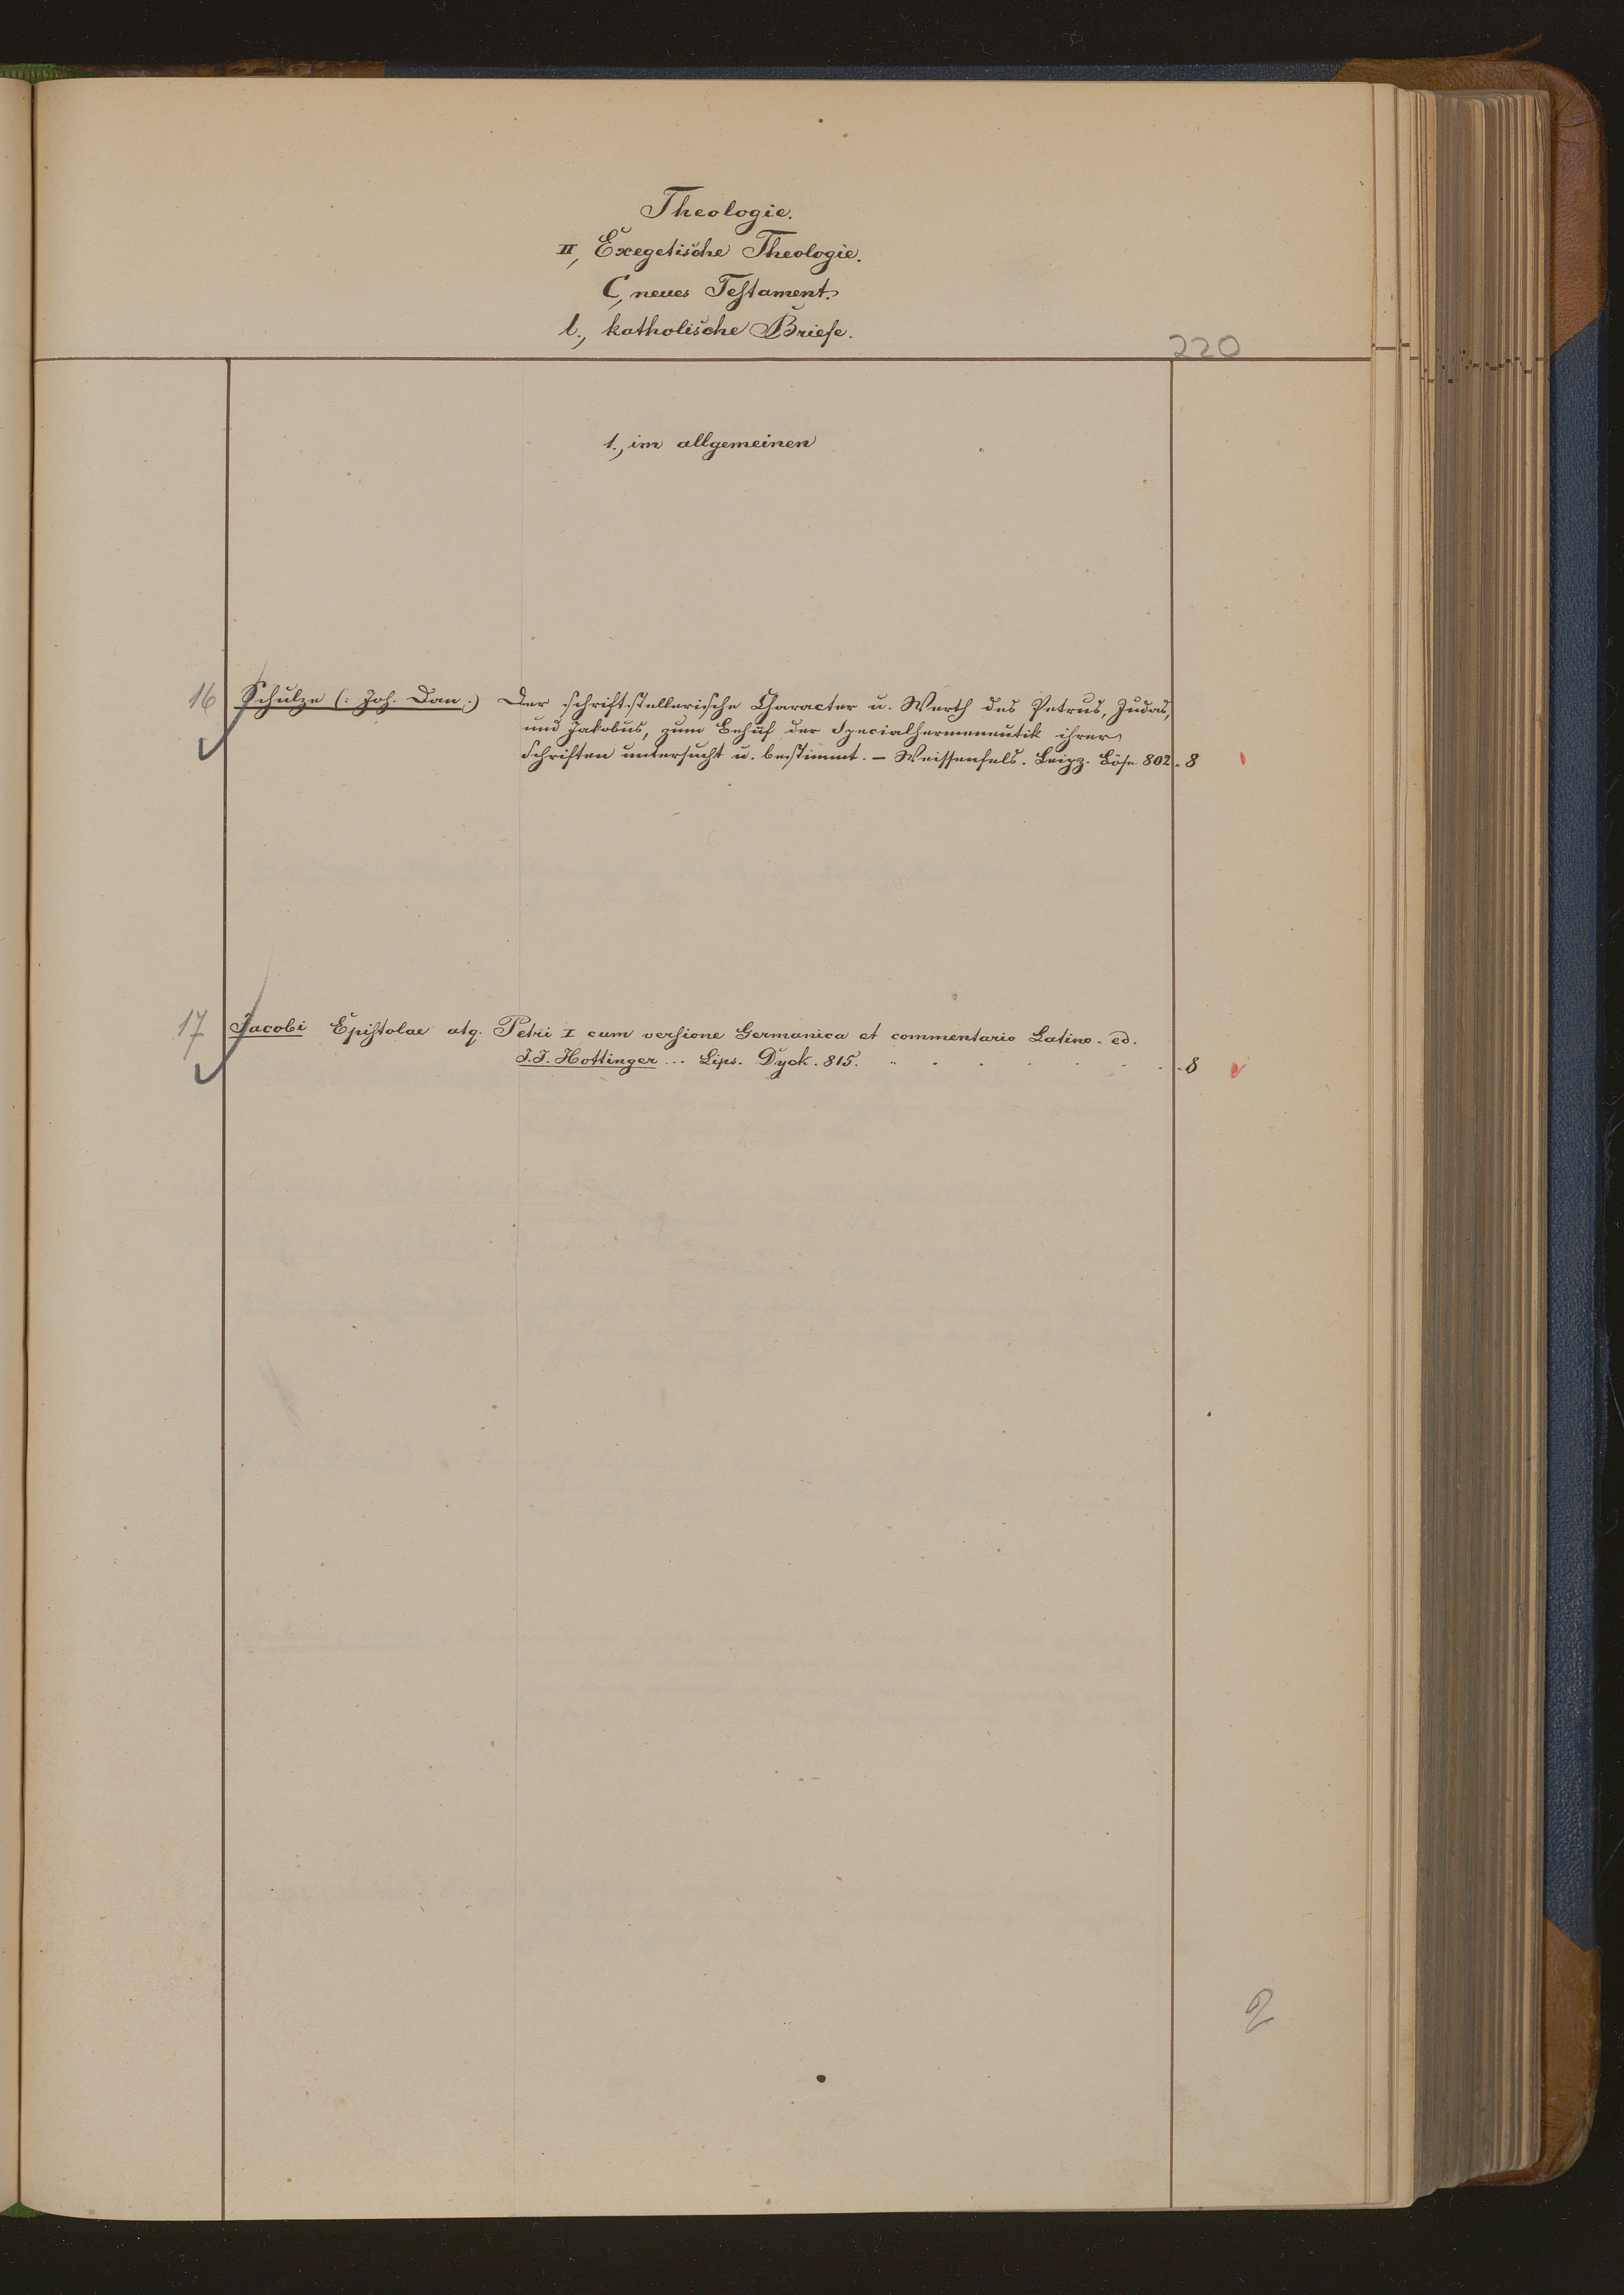 Theologie.
II, Exegetische Theologie.
C, neues Testament.
l., katholische Briefe.
220
1., im allgemeinen
16 Schulze (: Joh. Dan :) Der schriftstellerische Character u. Werth des Petrus, Judas,
und Jakobus, zum Behuf der Specialhermeneutik ihrer
Schriften untersucht u. bestimmt. – Weissenfels. Leipz. Böse 802. 8
17 Jacobi Epistolae atq. Petri I cum versione Germanica et commentario Latino. ed.
J.J. Hottinger ... Lips. Dyck. 815. . . . . . . . 8
2